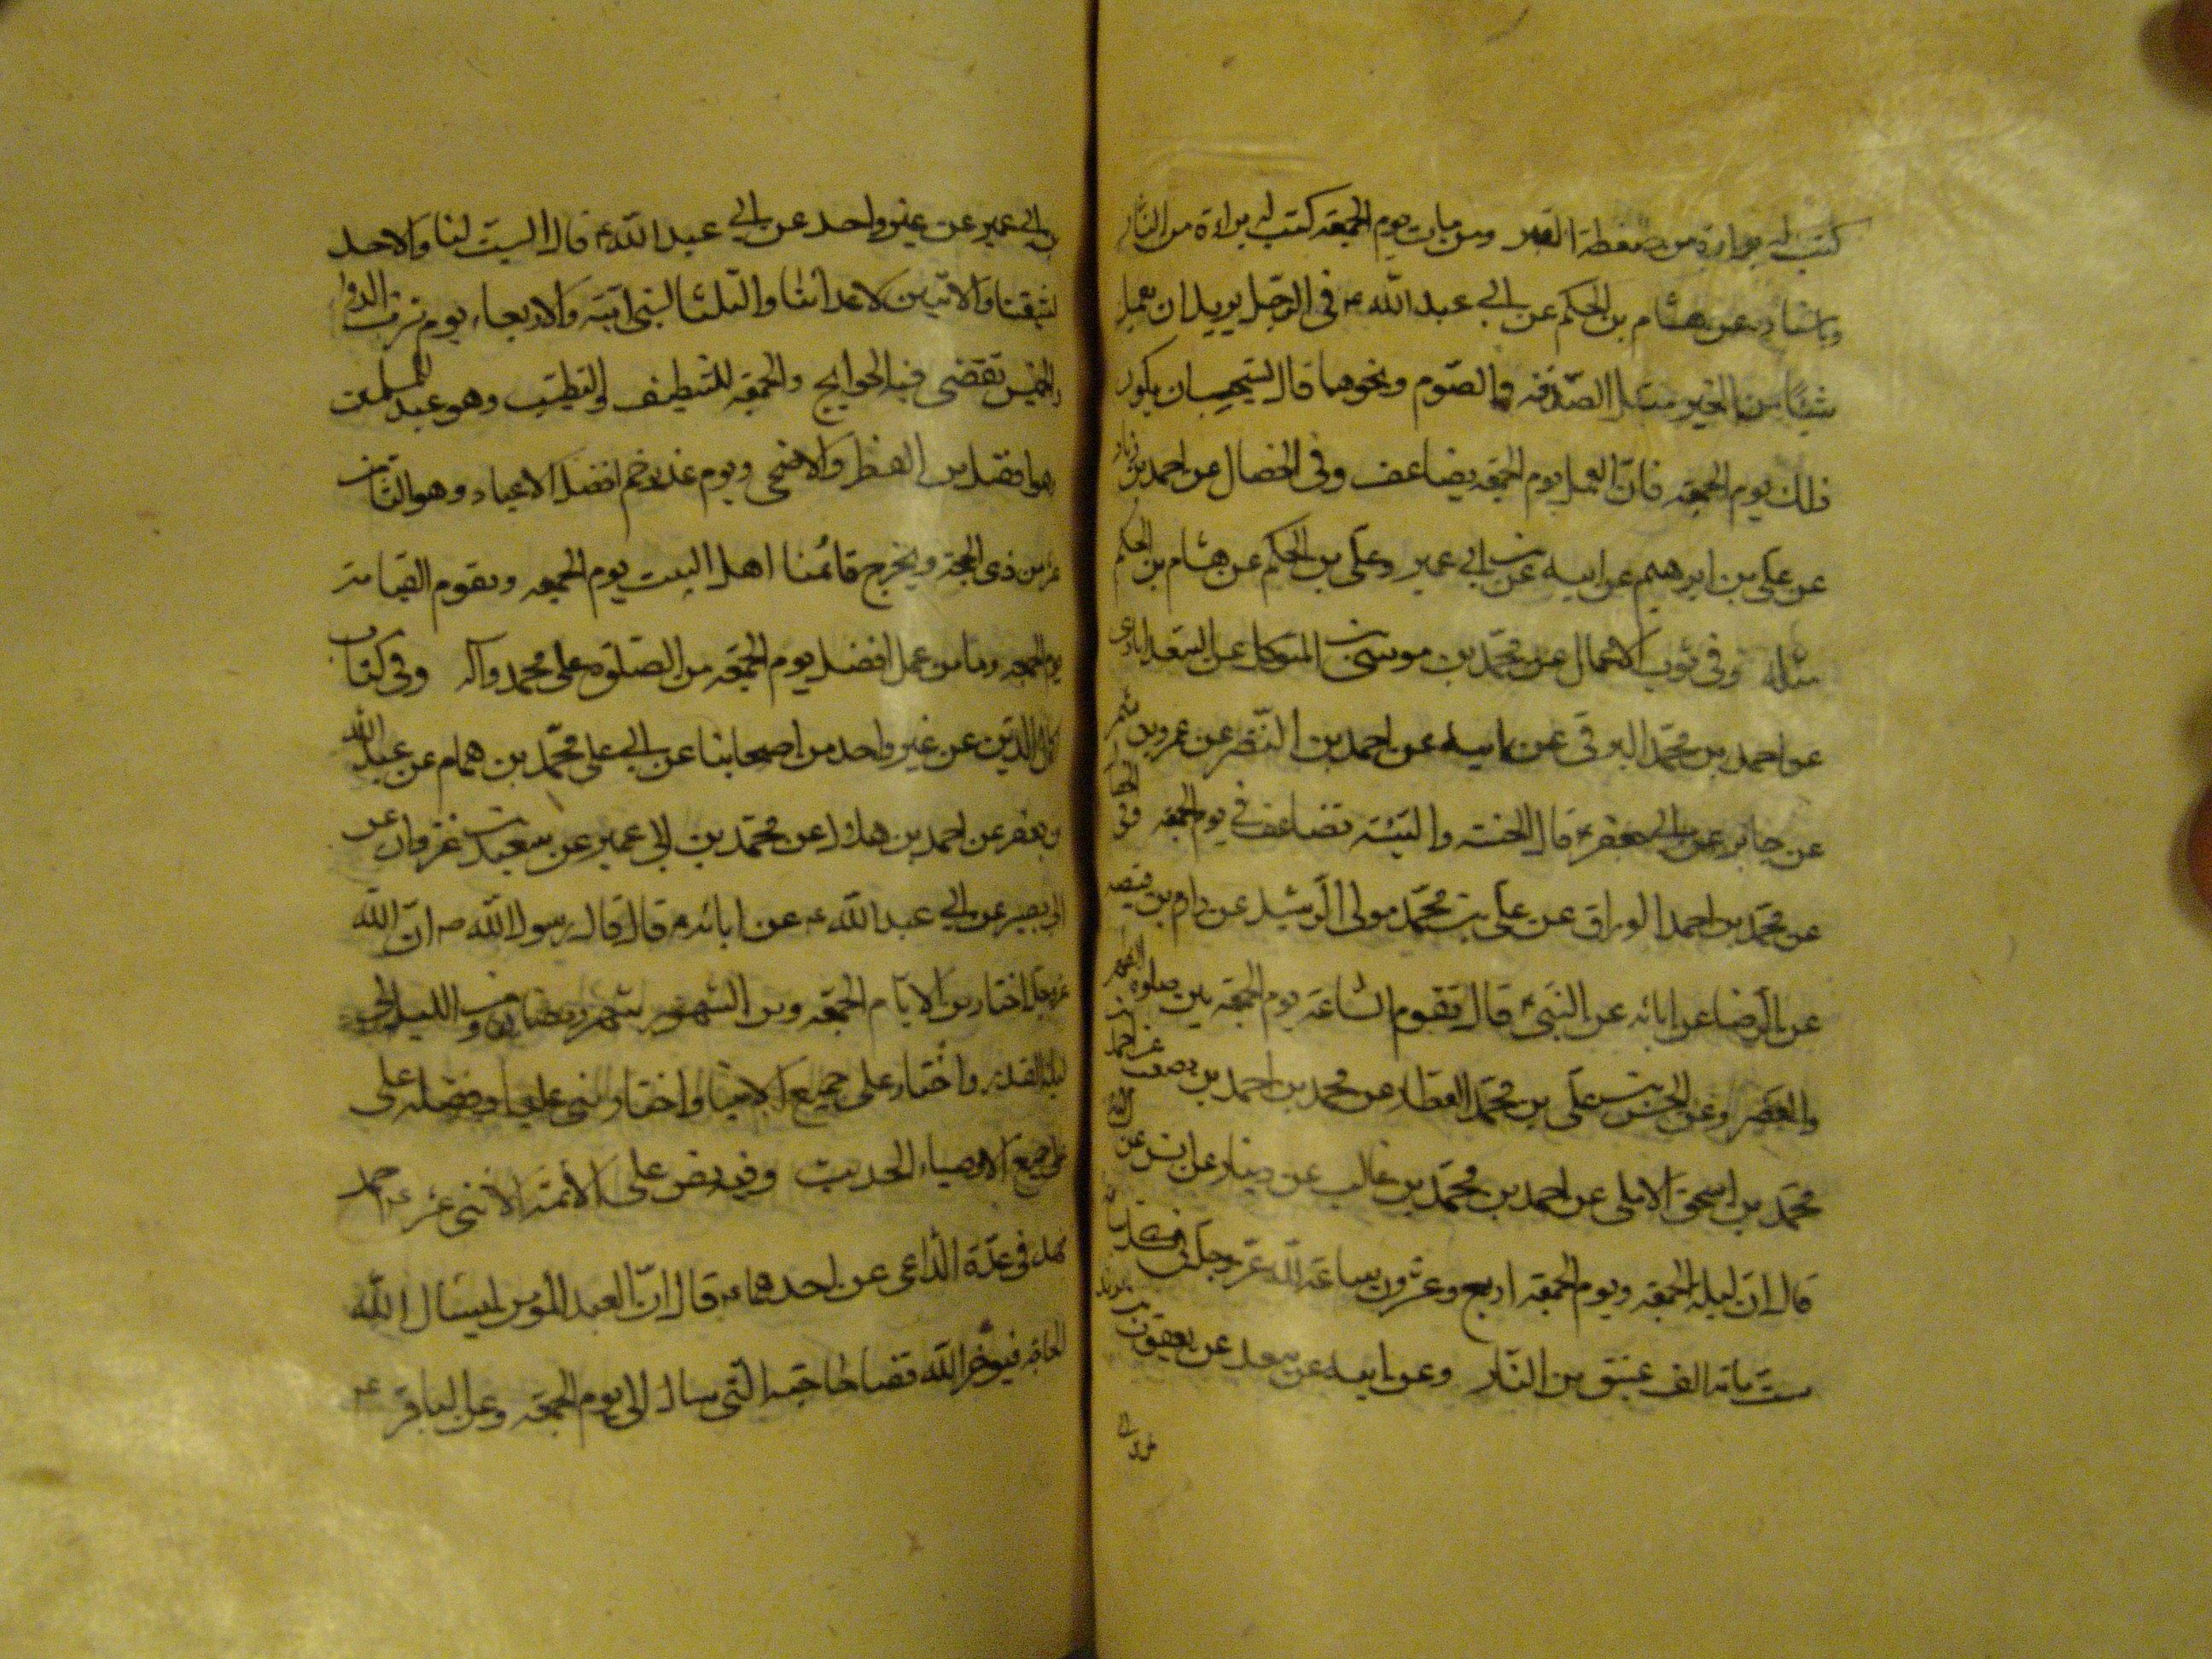 كتب له براءة من ضغطة القبر ومن مات يوم الجمعة كتب له براءة من النار
وباسناده عن هشام بن الحكم عن ابي عبد الله ع في الرجل يريد ان يعمل
شيئا من الخير مثل الصدقة والصوم ونحوهما قال يستحب ان يكون
ذلك يوم الجمعة فان العمل يوم الجمعة يضاعف وفي الخصال عن احمد بن زياد
عن علي بن ابرهيم عن ابيه عن ابن ابي عمير وعلي بن الحكم عن هشام بن الحكم
مثله وفي ثواب الاعمال عن محمد بن موسى بن المتوكل عن السعدابادي
عن احمد بن محمد البرقي عن ابيه عن احمد بن النضر عن عمرو بن شمر
عن جابر عن ابي جعفر ع قال الحسنة والسيئة تضاعف في يوم الجمعة وفي
عن محمد بن احمد الوراق عن علي بن محمد مولى الرشيد عن دارم بن قبيصة
عن الرضا عن ابائه عن النبي ص قال تقوم الساعة يوم الجمعة بين صلوة الظهر
والعصر وعن الحسن بن علي بن محمد العطار عن محمد بن احمد بن
محمد بن اسحق الاملي عن احمد بن محمد بن غالب عن دينار عن انس عن
قال ان ليلة الجمعة ويوم الجمعة اربع وعشرون ساعة لله عز وجل في كل ساعة
ست مائة الف عتيق من النار وعن ابيه عن سعد عن يعقوب بن يزيد
بن ابي عمير عن غير واحد عن ابي عبد الله ع قال السبت لنا والاحد
لشيعتنا والاثنين لاعدائنا والثلثا لبني امية والاربعاء يوم شرب الدوا
والخميس تقضى فيه الحوايج والجمعة للتنظيف والتطيب وهو عيد للمسلمين
وهو افضل من الفطر والاضحى ويوم غدير خم افضل الاعياد وهو الثامن
عشر من ذي الحجة ويخرج قائمنا اهل البيت يوم الجمعة وتقوم القيامة
يوم الجمعة وما من عمل افضل يوم الجمعة من الصلوة على محمد وآله وفي كتاب
كمال الدين عن غير واحد من اصحابنا عن ابي علي محمد بن همام عن عبد الله
بن جعفر عن احمد بن هلال عن محمد بن ابي عمير عن سعيد بن غزوان عن
ابي بصير عن ابي عبد الله ع عن ابائه ع قال قال رسول الله ص ان الله
عز وجل اختار من الايام الجمعة ومن الشهور شهر رمضان ومن الليالي
ليلة القدر واختار على جميع الانبيا واختار مني عليا وفضله على
على جميع الاوصياء الحديث وفيه نص على الائمة الاثني عشر ع احمد
بن فهد في عدة الداعي عن احدهما ع قال ان العبد المؤمن ليسال الله
الحاجة فيؤخر الله قضا حاجته التي سال الى يوم الجمعة وعن الباقر ع